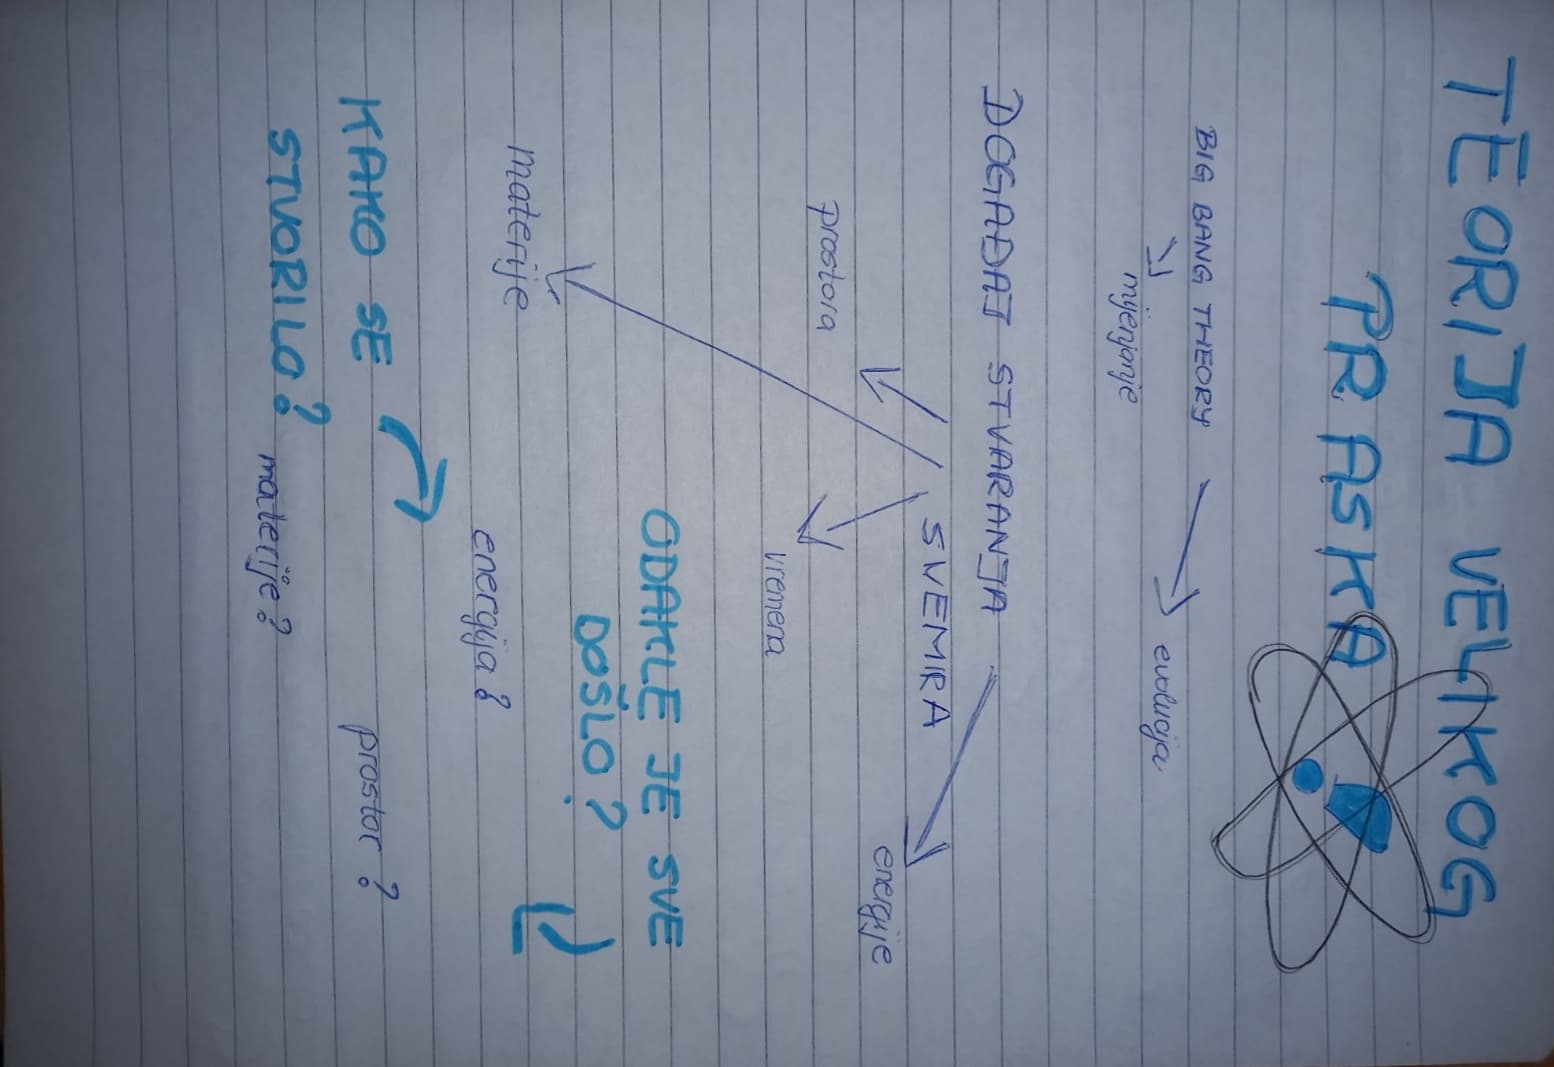 TEORIJA VELIKOG
PRASKA
BIG BANG THEORY
mijenjanje
evolucija
DOGAĐAJ STVARANJA
SVEMIRA
prostora
energije
vremena
materije
ODAKLE JE SVE
DOŠLO?
energija?
KAKO SE
STVORILO?
prostor?
materije?